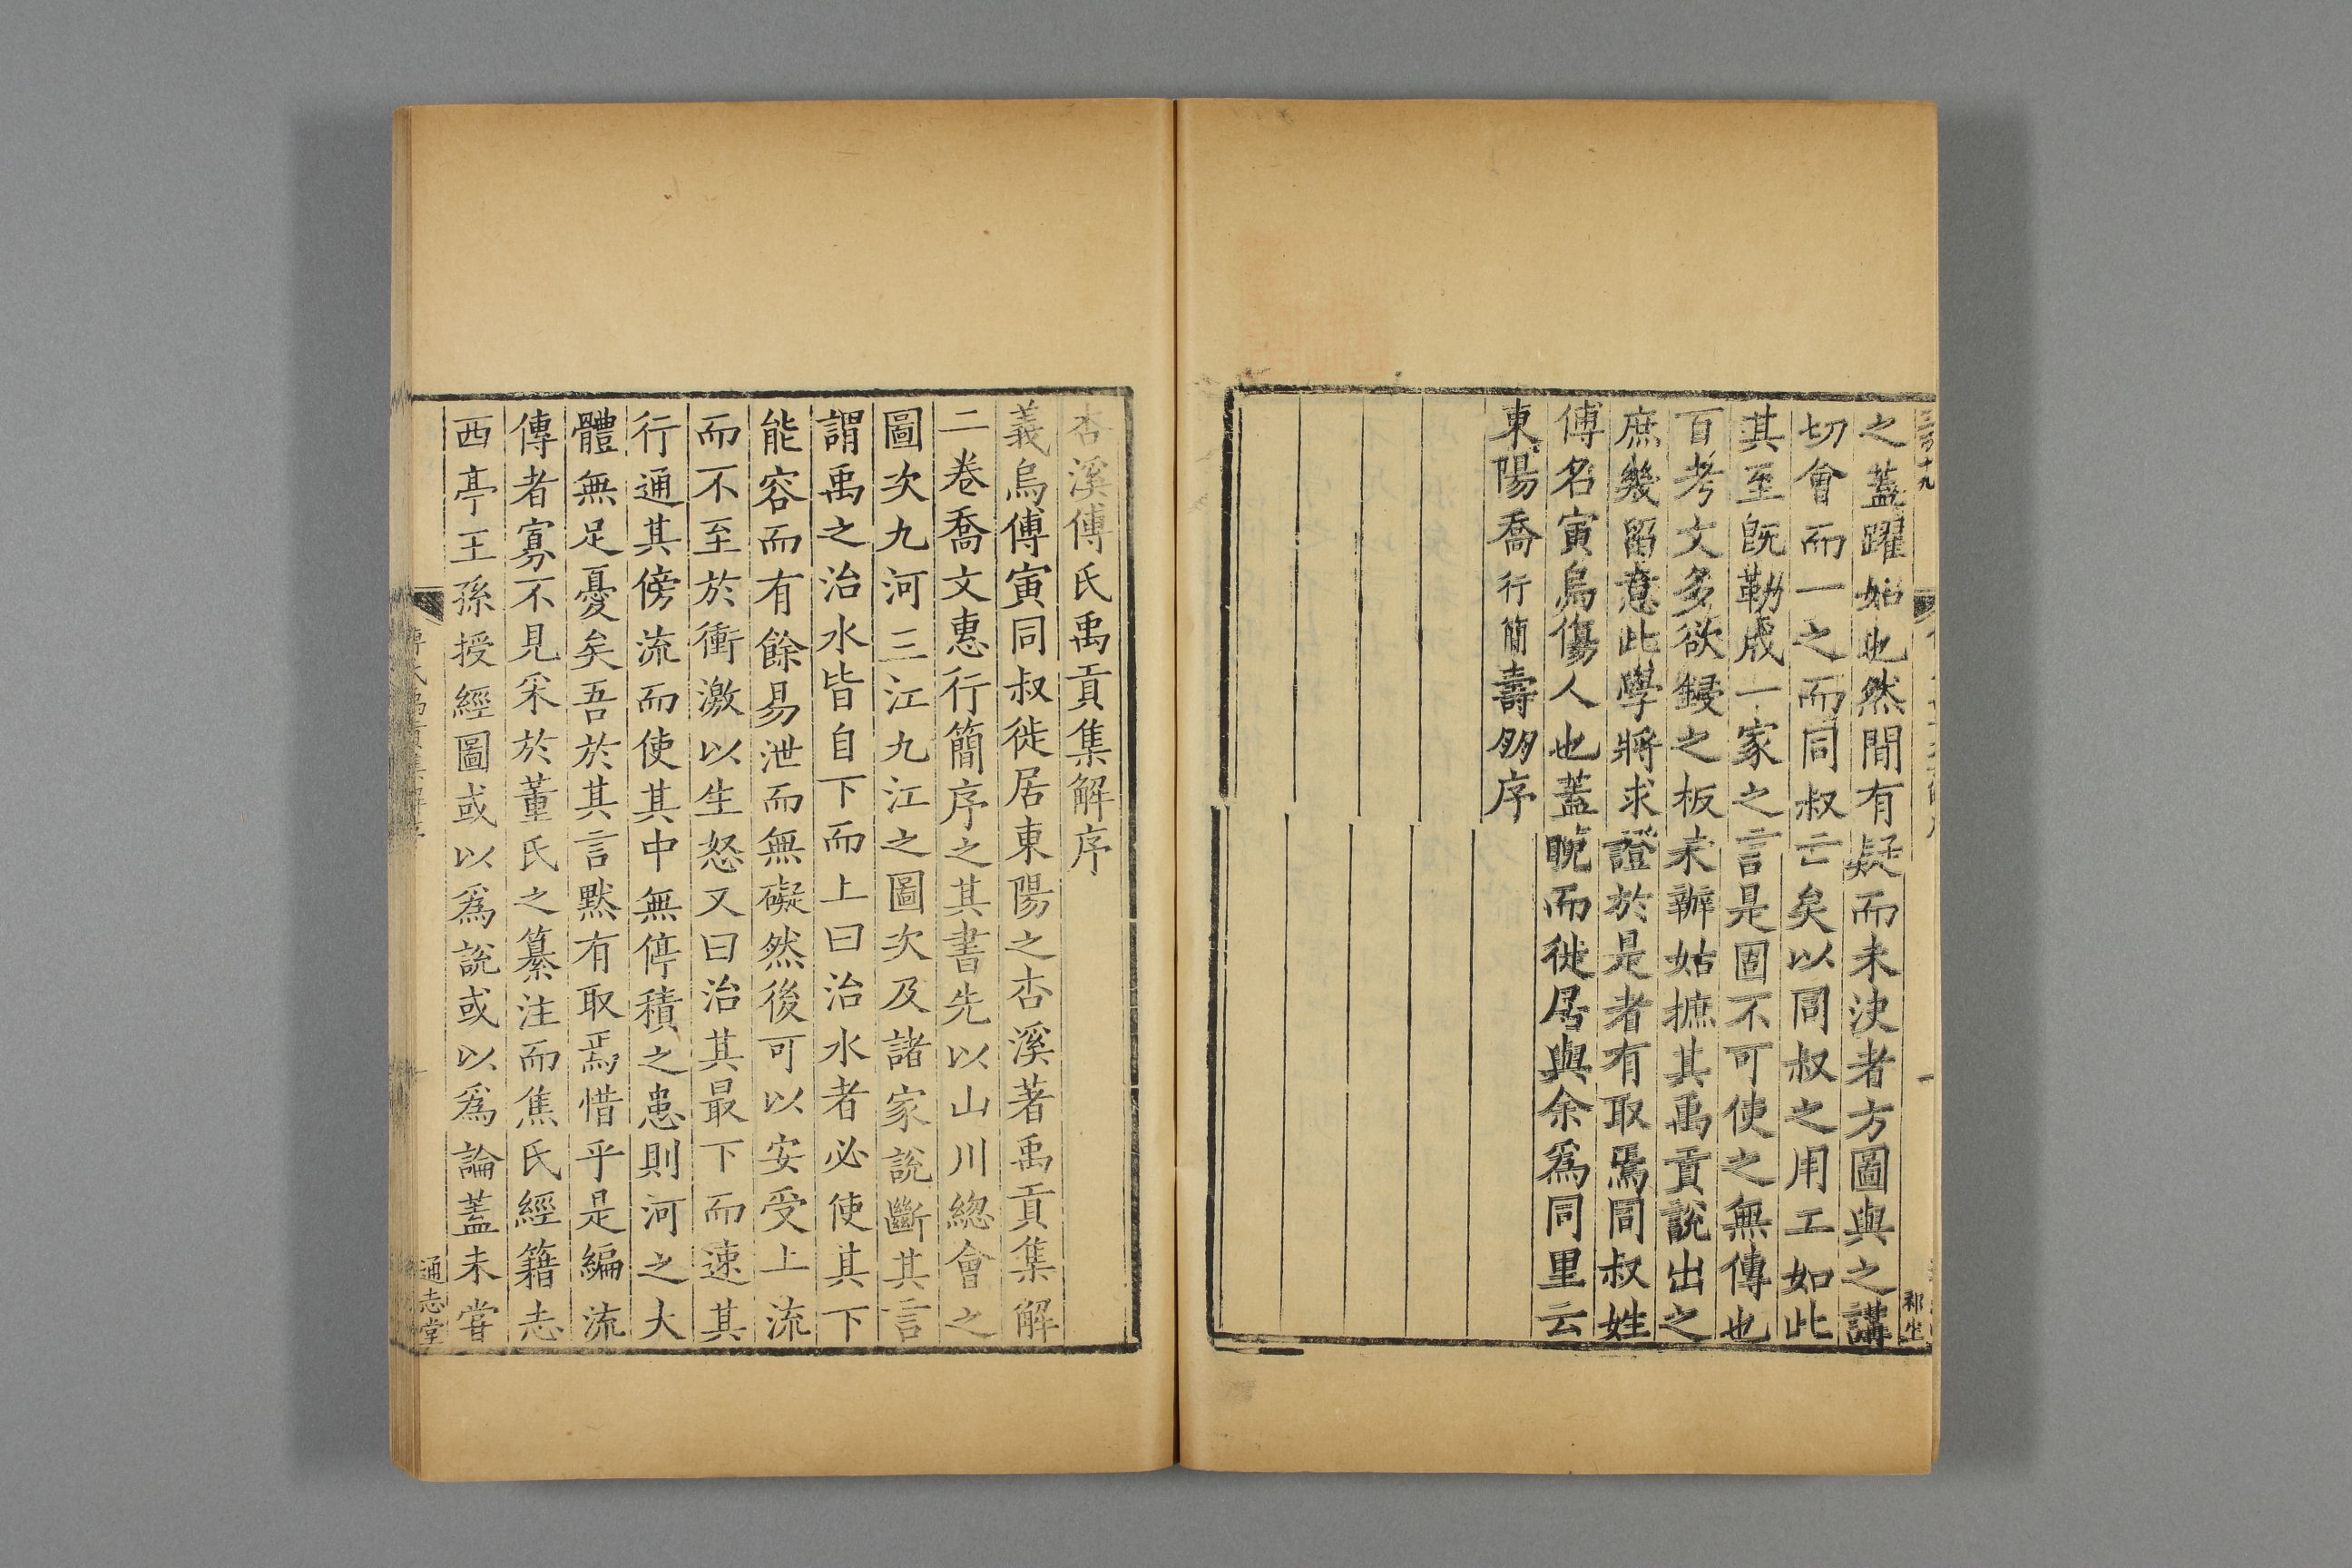 三百十九
祁生
之蓋躍如也然間有疑而未決者方圖與之講
切會而一之而同叔亡矣以同叔之用工如此
其至旣勒成一家之言是固不可使之無傳也
百考文多欲鋟之板未辦姑摭其禹貢說出之
庶幾留意此學將求證於是者有取焉同叔姓
傅名寅烏傷人也蓋晚而徙居與余爲同里云
東陽喬行簡壽朋序
杏溪傅氏禹貢集解序
義烏傅寅同叔徙居東陽之杏溪著禹貢集解
二卷喬文惠行簡序之其書先以山川總會之
圖次九河三江九江之圖次及諸家說斷其言
謂禹之治水皆自下而上曰治水者必使其下
能容而有餘易泄而無礙然後可以安受上流
而不至於衝激以生怒又曰治其最下而速其
行通其傍流而使其中無停積之患則河之大
體無足憂矣吾於其言默有取焉惜乎是編流
傳者寡不見采於董氏之纂注而焦氏經籍志
西亭王孫授經圖或以爲說或以爲論蓋未嘗
通志堂